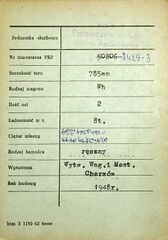 Jednostka służbowa
Parowozownia
Nr inwentarza PKP 50806-1429-3
Szerokość toru 785mm
Rodzaj wagonu Wh
Ilość osi 2
Ładowność w t. 8t.
Ciężar własny
Rodzaj hamulca ręczny
Wytwórnia Wytw. Wag.i Most.
Chorzów
Rok budowy 1948r.